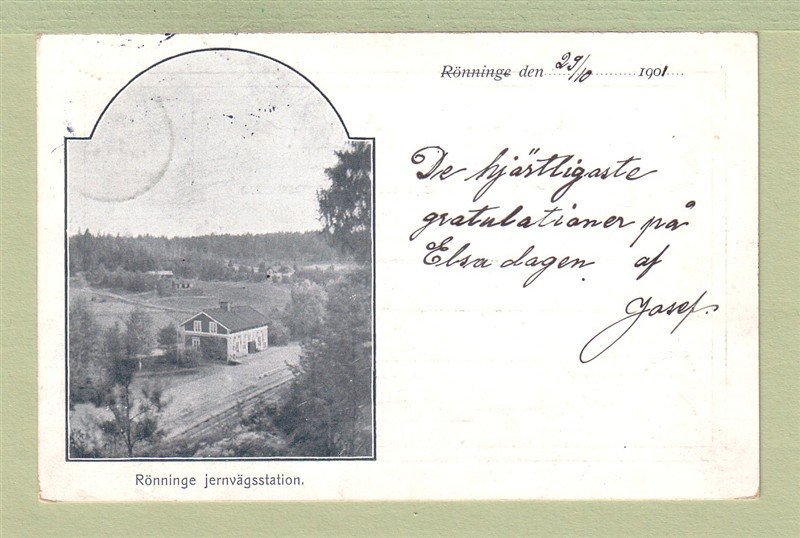 Rönninge den 29/10 1901
De hjärtligaste
gratulationer på
Elsa dagen. af
Josef.
Rönninge jernvägsstation.